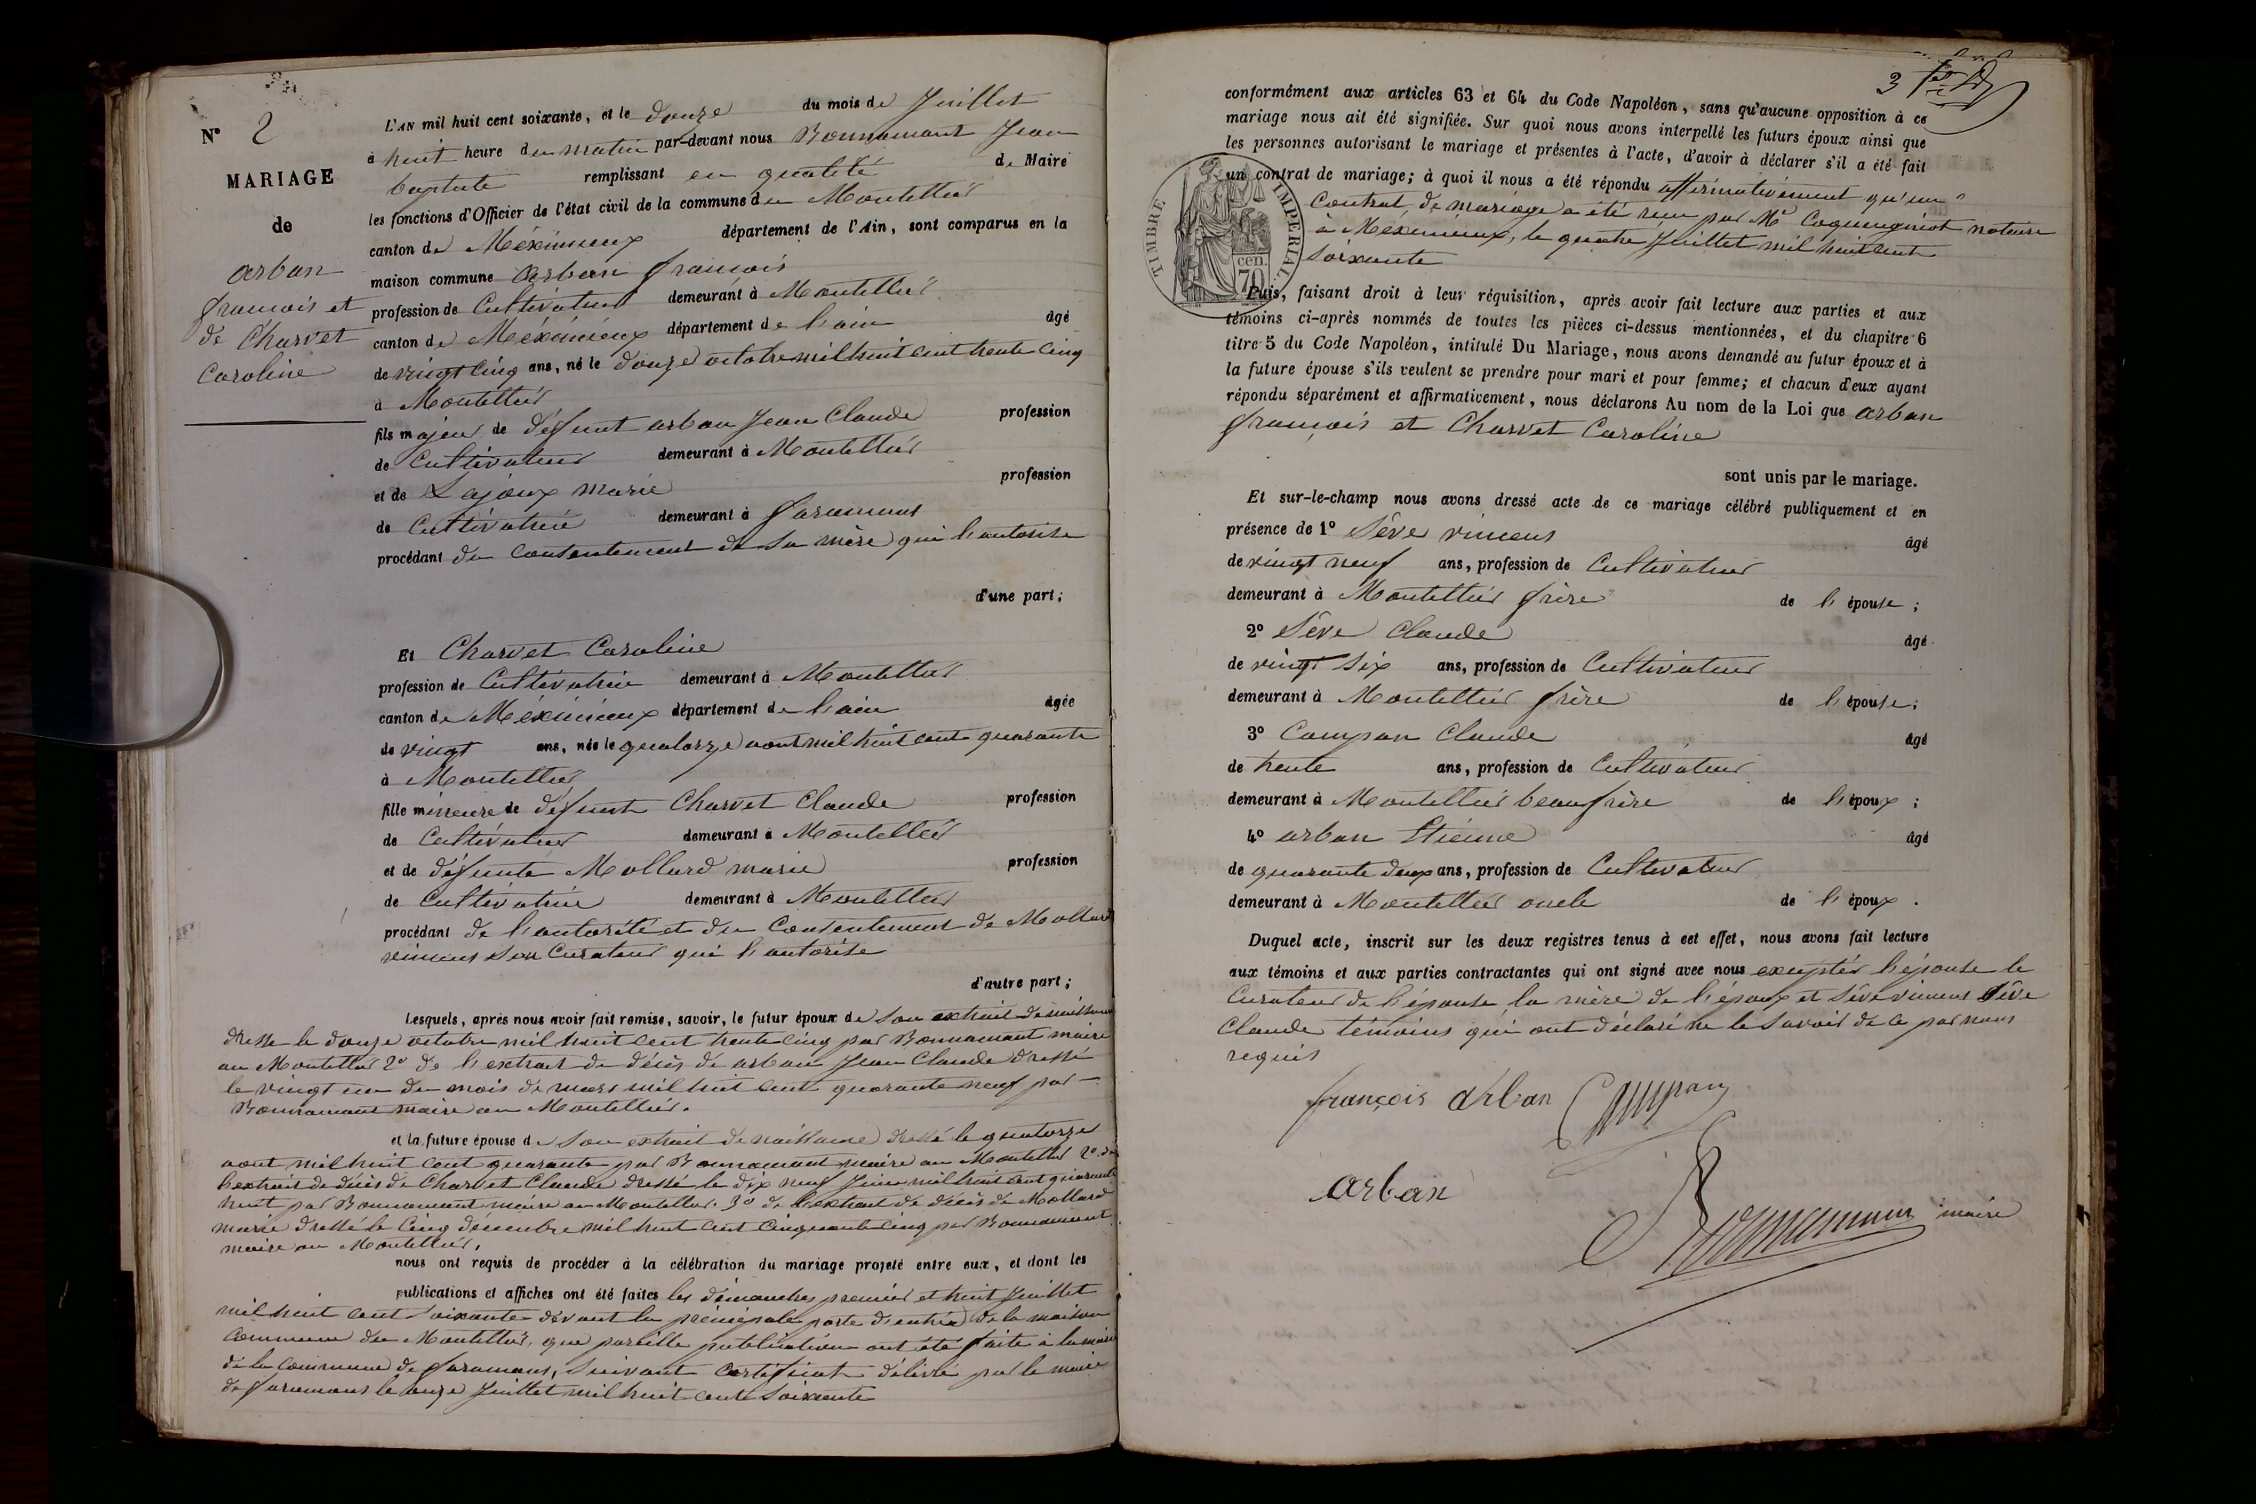 N° 2
MARIAGE
de
arban
françois et
de Charvet
Caroline
L'AN mil huit cent soixante, et le douze du mois de Juillet
à huit heure du matin par-devant nous Bonnamant Jean
baptiste remplissant en qualité de Maire
les fonctions d'Officier de l'état civil de la commune du Montellier
canton de Méximieux département de l'Ain, sont comparus en la
maison commune arban françois
profession de Cultivateur demeurant à Montellier
canton de Méximieux département de l'ain âgé
de vingt cinq ans, né le douze octobre mil huit cent trente cinq
à Montellier
fils majeur de défunt arban Jean Claude profession
de Cultivateur demeurant à Montellier
et de Lajoux marie profession
de Cultivatrice demeurant à faramans
procédant du consentement de sa mère qui l'autorise
d'une part;
Et Charvet Caroline
profession de Cultivatrice demeurant à Montellier
canton de Méximieux département de l'ain âgée
de vingt ans, née le quatorze aout mil huit cent quarante
à Montellier
fille mineure de défunt Charvet Claude profession
de Cultivateur demeurant à Montellier
et de défunte Mollard marie profession
de Cultivatrice demeurant à Montellier
procédant de l'autorité et du Consentement de Mollard
vincens son Curateur qui l'autorise
d'autre part;
Lesquels, après nous avoir fait remise, savoir, le futur époux de son extrait de naissance
dressé le douze octobre mil huit cent trente cinq par Bonnamant maire
au Montellier 2° de l'extrait de décès de arban Jean Claude dressé
le vingt un du mois de mars mil huit cent quarante neuf par
Bonnamant maire au Montellier.
et la future épouse de son extrait de naissance dressé le quatorze
aout mil huit cent quarante par Bonnamant maire au Montellier 2° de
l'extrait de décès de Charvet Claude dressé le dix neuf Juin mil huit cent quarante
huit par Bonnamant maire au Montellier. 3° de l'extrait de décès de Mollard
marie dressé le cinq décembre mil huit cent cinquante cinq par Bonnamant
maire au Montellier.
nous ont requis de procéder à la célébration du mariage projeté entre eux, et dont les
publications et affiches ont été faites les dimanches premier et huit Juillet
mil huit cent soixante devant la principale porte d'entrée de la maison
commune du Montellier, que pareille publication ont été faite à la mairie
de la commune de faramans, suivant certificat délivré par le maire
de faramans le onze Juillet mil huit cent soixante
3
conformément aux articles 63 et 64 du Code Napoléon, sans qu'aucune opposition à ce
mariage nous ait été signifiée. Sur quoi nous avons interpellé les futurs époux ainsi que
les personnes autorisant le mariage et présentes à l'acte, d'avoir à déclarer s'il a été fait
un contrat de mariage; à quoi il nous a été répondu affirmativement qu'un
Contrat de mariage a été reçu par Me Coquugniot notaire
à Méximieux, le quatre Juillet mil huit cent
soixante
TIMBRE IMPÉRIAL
cen.
70
Puis, faisant droit à leur réquisition, après avoir fait lecture aux parties et aux
témoins ci-après nommés de toutes les pièces ci-dessus mentionnées, et du chapitre 6
titre 5 du Code Napoléon, intitulé Du Mariage, nous avons demandé au futur époux et à
la future épouse s'ils veulent se prendre pour mari et pour femme; et chacun d'eux ayant
répondu séparément et affirmativement, nous déclarons Au nom de la Loi que arban
françois et Charvet Caroline
sont unis par le mariage.
Et sur-le-champ nous avons dressé acte de ce mariage célébré publiquement et en
présence de 1° Sève vincens âgé
de vingt neuf ans, profession de Cultivateur
demeurant à Montellier frère de l'épouse;
2° Sève Claude âgé
de vingt six ans, profession de Cultivateur
demeurant à Montellier frère de l'épouse;
3° Campan Claude âgé
de trente ans, profession de Cultivateur
demeurant à Montellier beaufrère de l'époux;
4° arban Etienne âgé
de quarante deux ans, profession de Cultivateur
demeurant à Montellier oncle de l'époux.
Duquel acte, inscrit sur les deux registres tenus à cet effet, nous avons fait lecture
aux témoins et aux parties contractantes qui ont signé avec nous exceptés l'épouse le
Curateur de l'épouse la mère de l'époux et Sève vincens Sève
Claude témoins qui ont déclaré ne le savoir de ce par nous
requis
françois arban Campan
arban
Bonnamant maire